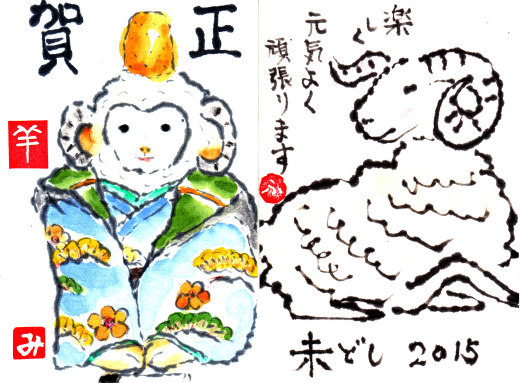 賀正
羊
み
楽しく
元気よく
頑張ります
未どし 2015